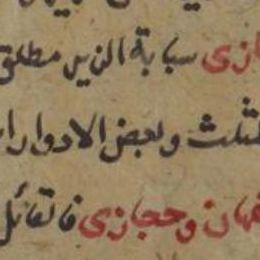 ازى سبابة الزير مطلق
مثلث وبعض الادوار ا
فهان وحجازى فاتقائل